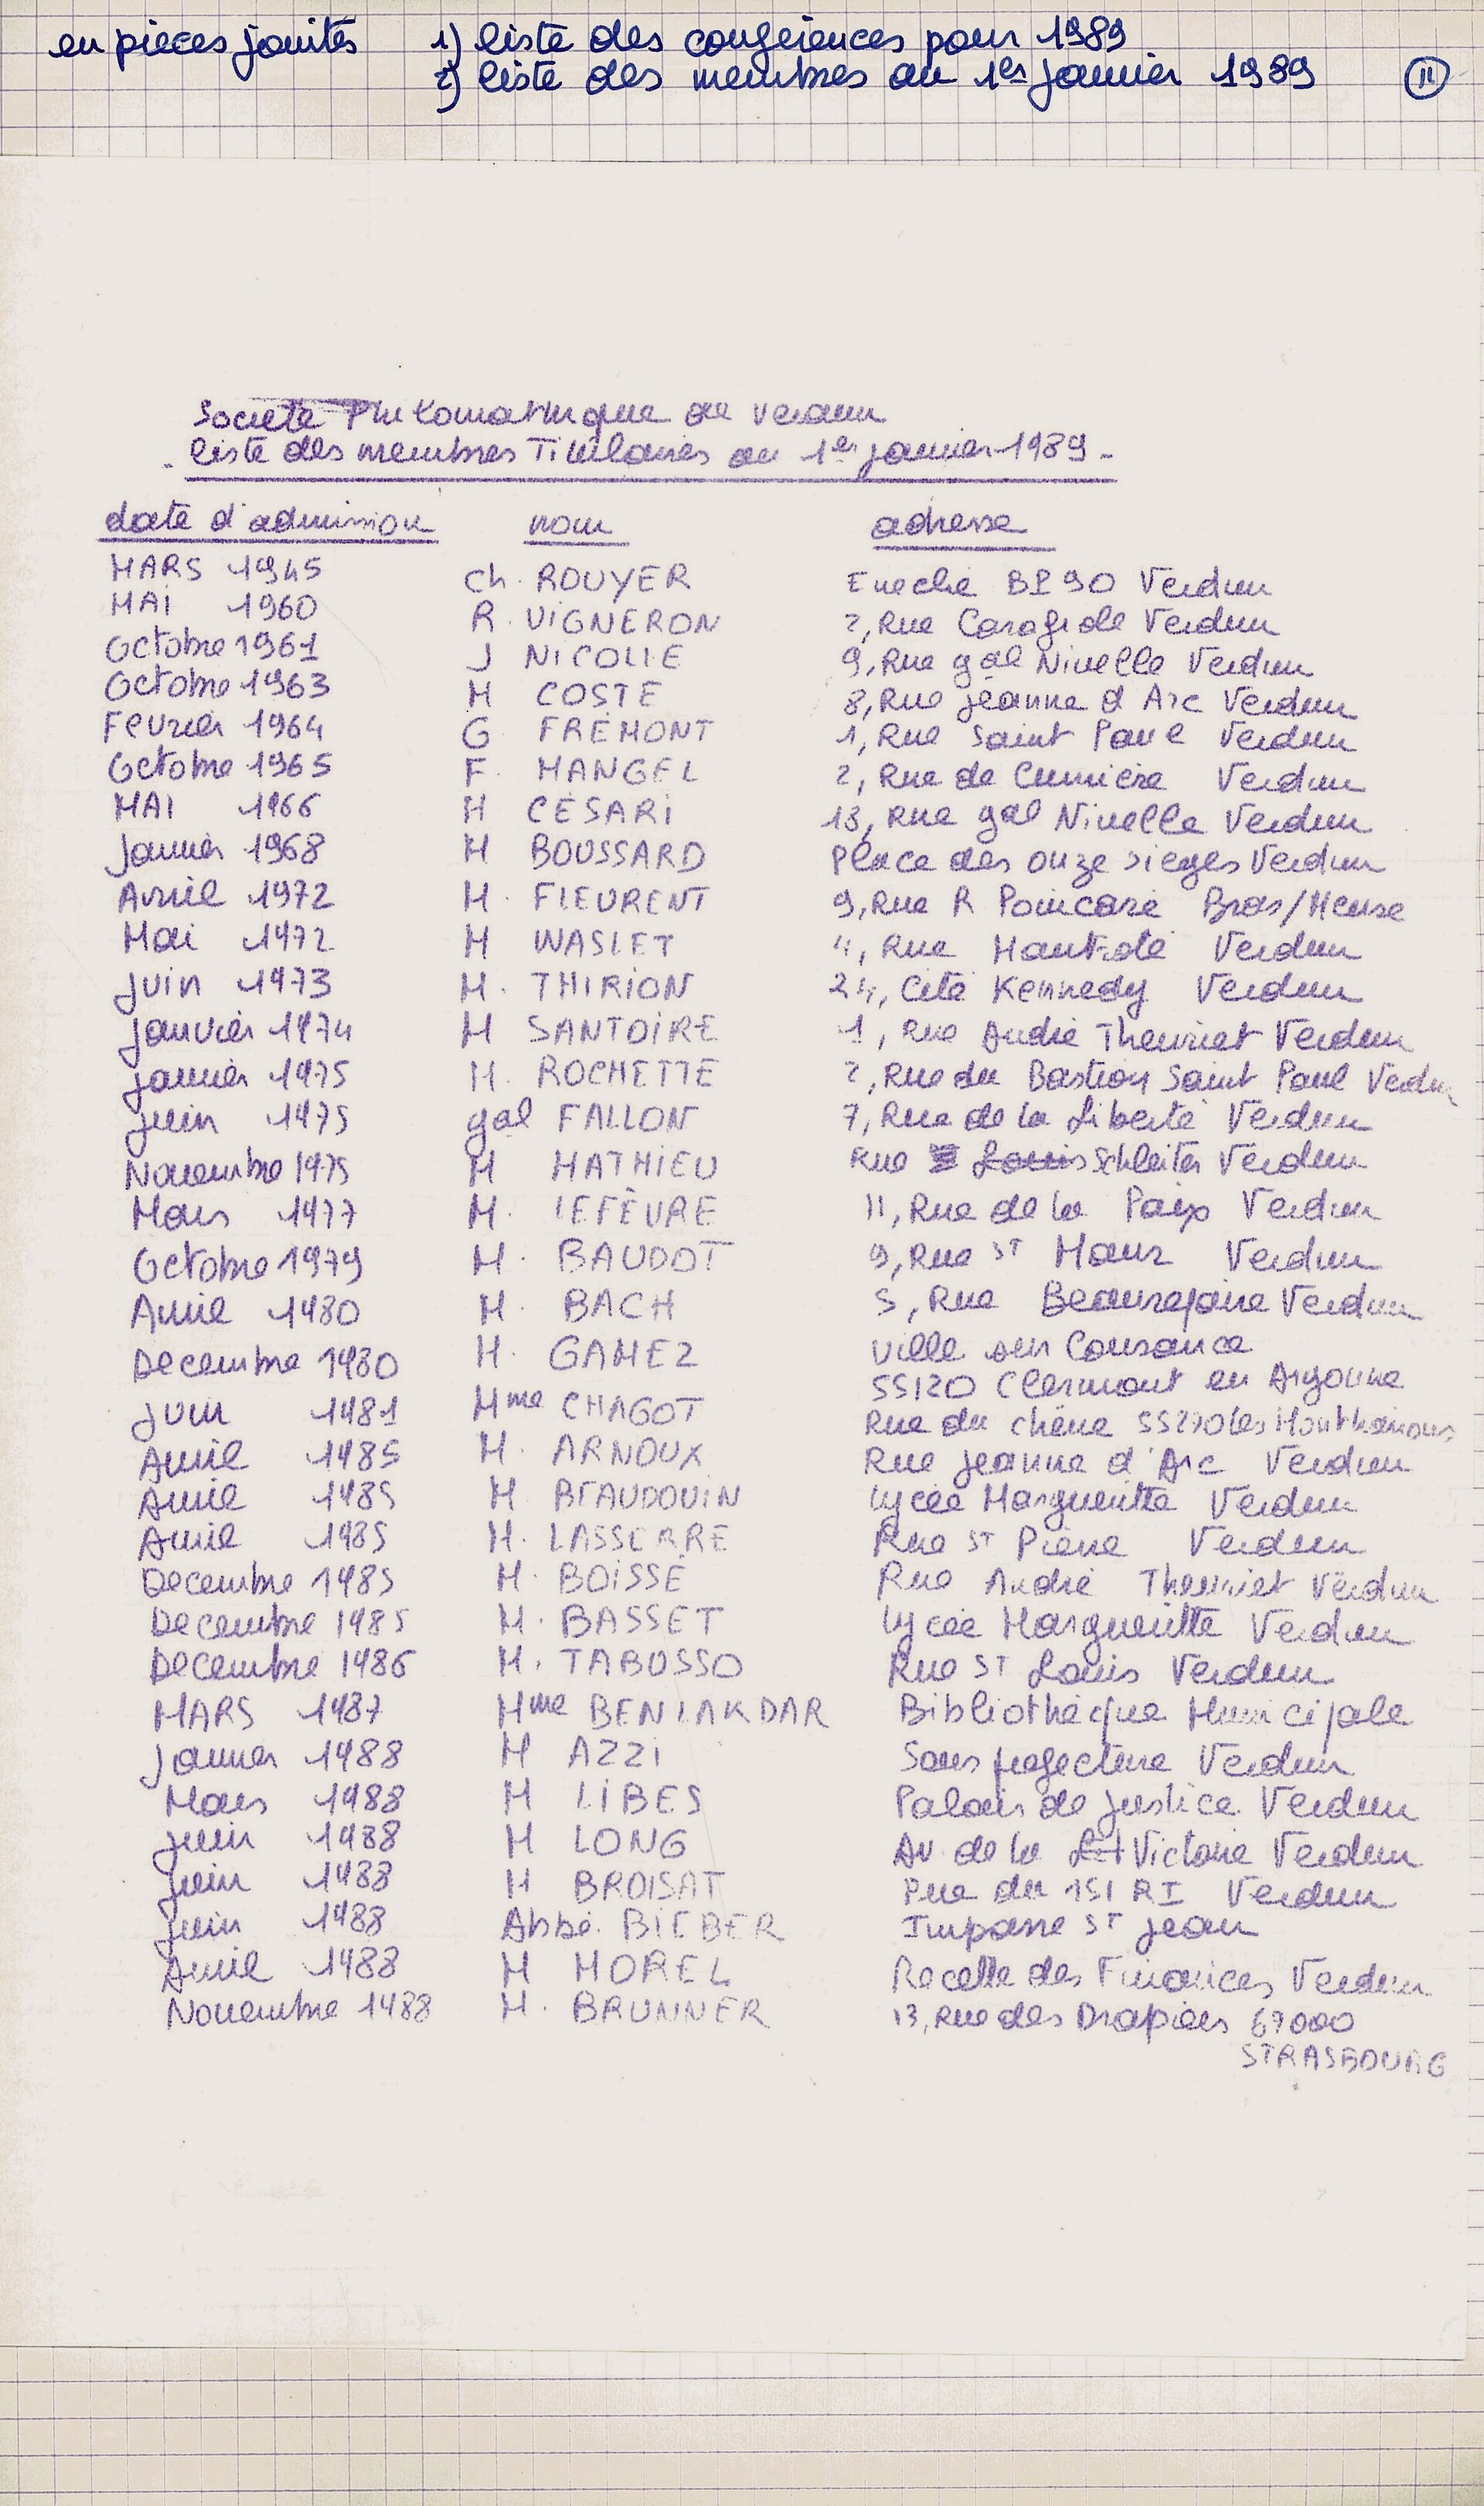 en pièces jointes 1) liste des conférences pour 1989
2) liste des membres au 1er janvier 1989 II
Société Philomathique de Verdun
liste des membres Titulaires au 1er janvier 1989.
date d'admission nom adresse
MARS 1945 Ch. ROUYER Evêché BP 90 Verdun
MAI 1960 R. VIGNERON 2, Rue Verdun
Octobre 1961 J NICOLLE 9, Rue gal Nivelle Verdun
Octobre 1963 M COSTE 8, Rue Jeanne d Arc Verdun
Février 1964 G FRÉMONT 1, Rue Saint Paul Verdun
Octobre 1965 F. MANGEL 2, Rue de Cumière Verdun
MAI 1966 M CÉSARI 13, Rue gal Nivelle Verdun
Janvier 1968 M BOUSSARD Place des onze sieges Verdun
Avril 1972 M. FLEURENT 9, Rue R Poincaré Bras/Meuse
Mai 1972 M WASLET 4, Rue Verdun
Juin 1973 M. THIRION 24, Cité Kennedy Verdun
Janvier 1974 M SANTOIRE 1, Rue André Theuriet Verdun
janvier 1975 M. ROCHETTE 2, Rue du Bastion Saint Paul Verdun
juin 1975 gal FALLON 7, Rue de la Liberté Verdun
Novembre 1975 M MATHIEU Rue Louis Schleiter Verdun
Mars 1977 M. LEFÈVRE 11, Rue de la Paix Verdun
Octobre 1979 M. BAUDOT 9, Rue St Maur Verdun
Avril 1980 M. BACH 5, Rue Beaurepaire Verdun
Decembre 1980 M. GAMEZ Ville sur Cousance
55120 Clermont en Argonne
juin 1981 Mme CHAGOT Rue du chêne 55270 les Monthairons
Avril 1985 M. ARNOUX Rue Jeanne d'Arc Verdun
Avril 1985 M BEAUDOUIN Lycée Margueritte Verdun
Avril 1985 M. LASSERRE Rue St Pierre Verdun
Decembre 1985 M. BOISSÉ Rue André Theuriet Verdun
Decembre 1985 M. BASSET Lycée Margueritte Verdun
Decembre 1986 M. TABUSSO Rue St Louis Verdun
MARS 1987 Mme BENLAKDAR Bibliothèque Municipale
Janvier 1988 M AZZI Sous prefecture Verdun
Mars 1988 M LIBES Palais de justice Verdun
juin 1988 M LONG Av. de la Victoire Verdun
juin 1988 M BROISAT Rue du 151 RI Verdun
juin 1988 Abbé. BIEBER Impasse St Jean
Avril 1988 M MOREL Recette des Finances Verdun
Novembre 1988 M. BRUNNER 13, Rue des Drapiers 67000
STRASBOURG